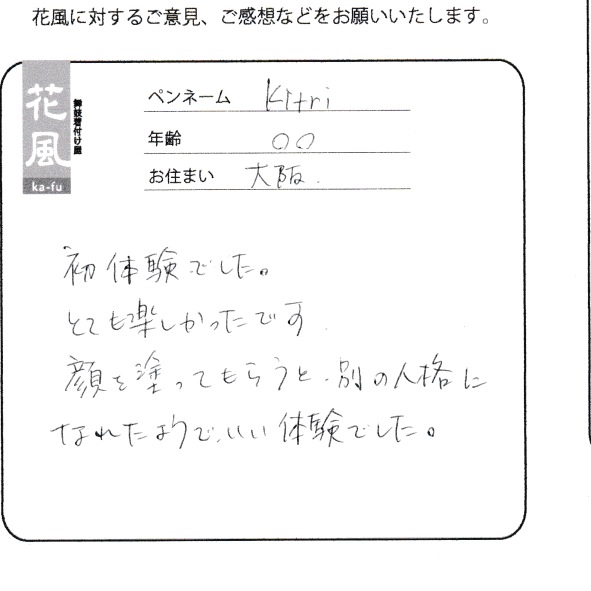 花風に対するご意見、ご感想などをお願いいたします。
花風
舞妓着付け屋
ka-fu
ペンネーム Kitri
年齢 〇〇
お住まい 大阪.
初体験でした。
とても楽しかったです.
顔を塗ってもらうと、別の人格に
なれたようで、いい体験でした。